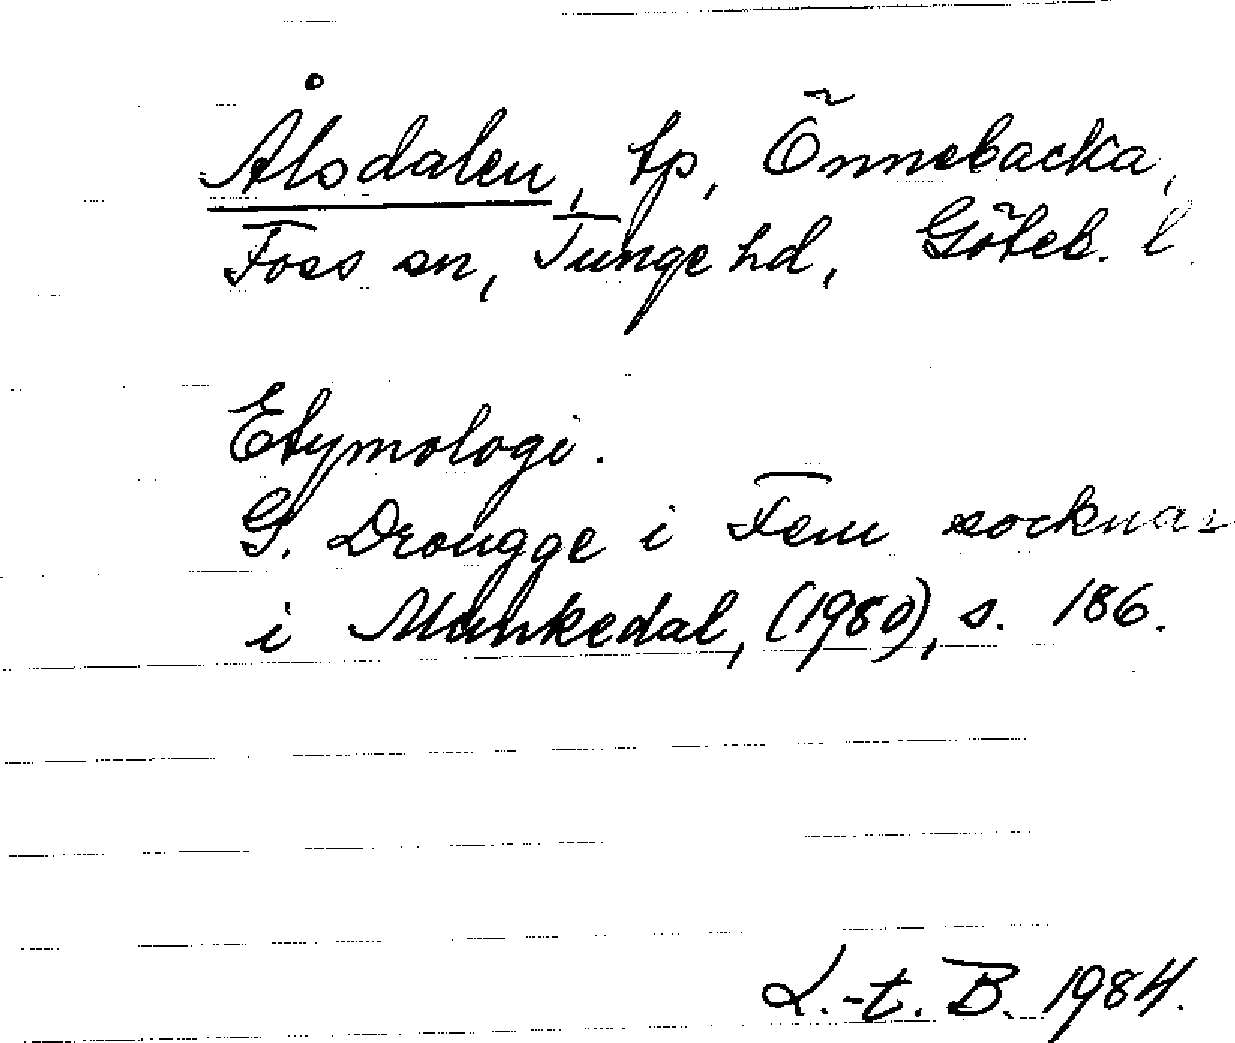 Ålsdalen, tp, Önnebacka,
Foss sn, Tunge hd, Göteb. l.
Etymologi.
G. Drougge i Fem socknar
i Munkedal, (1980), s. 186.
L.-t. B. 1984.